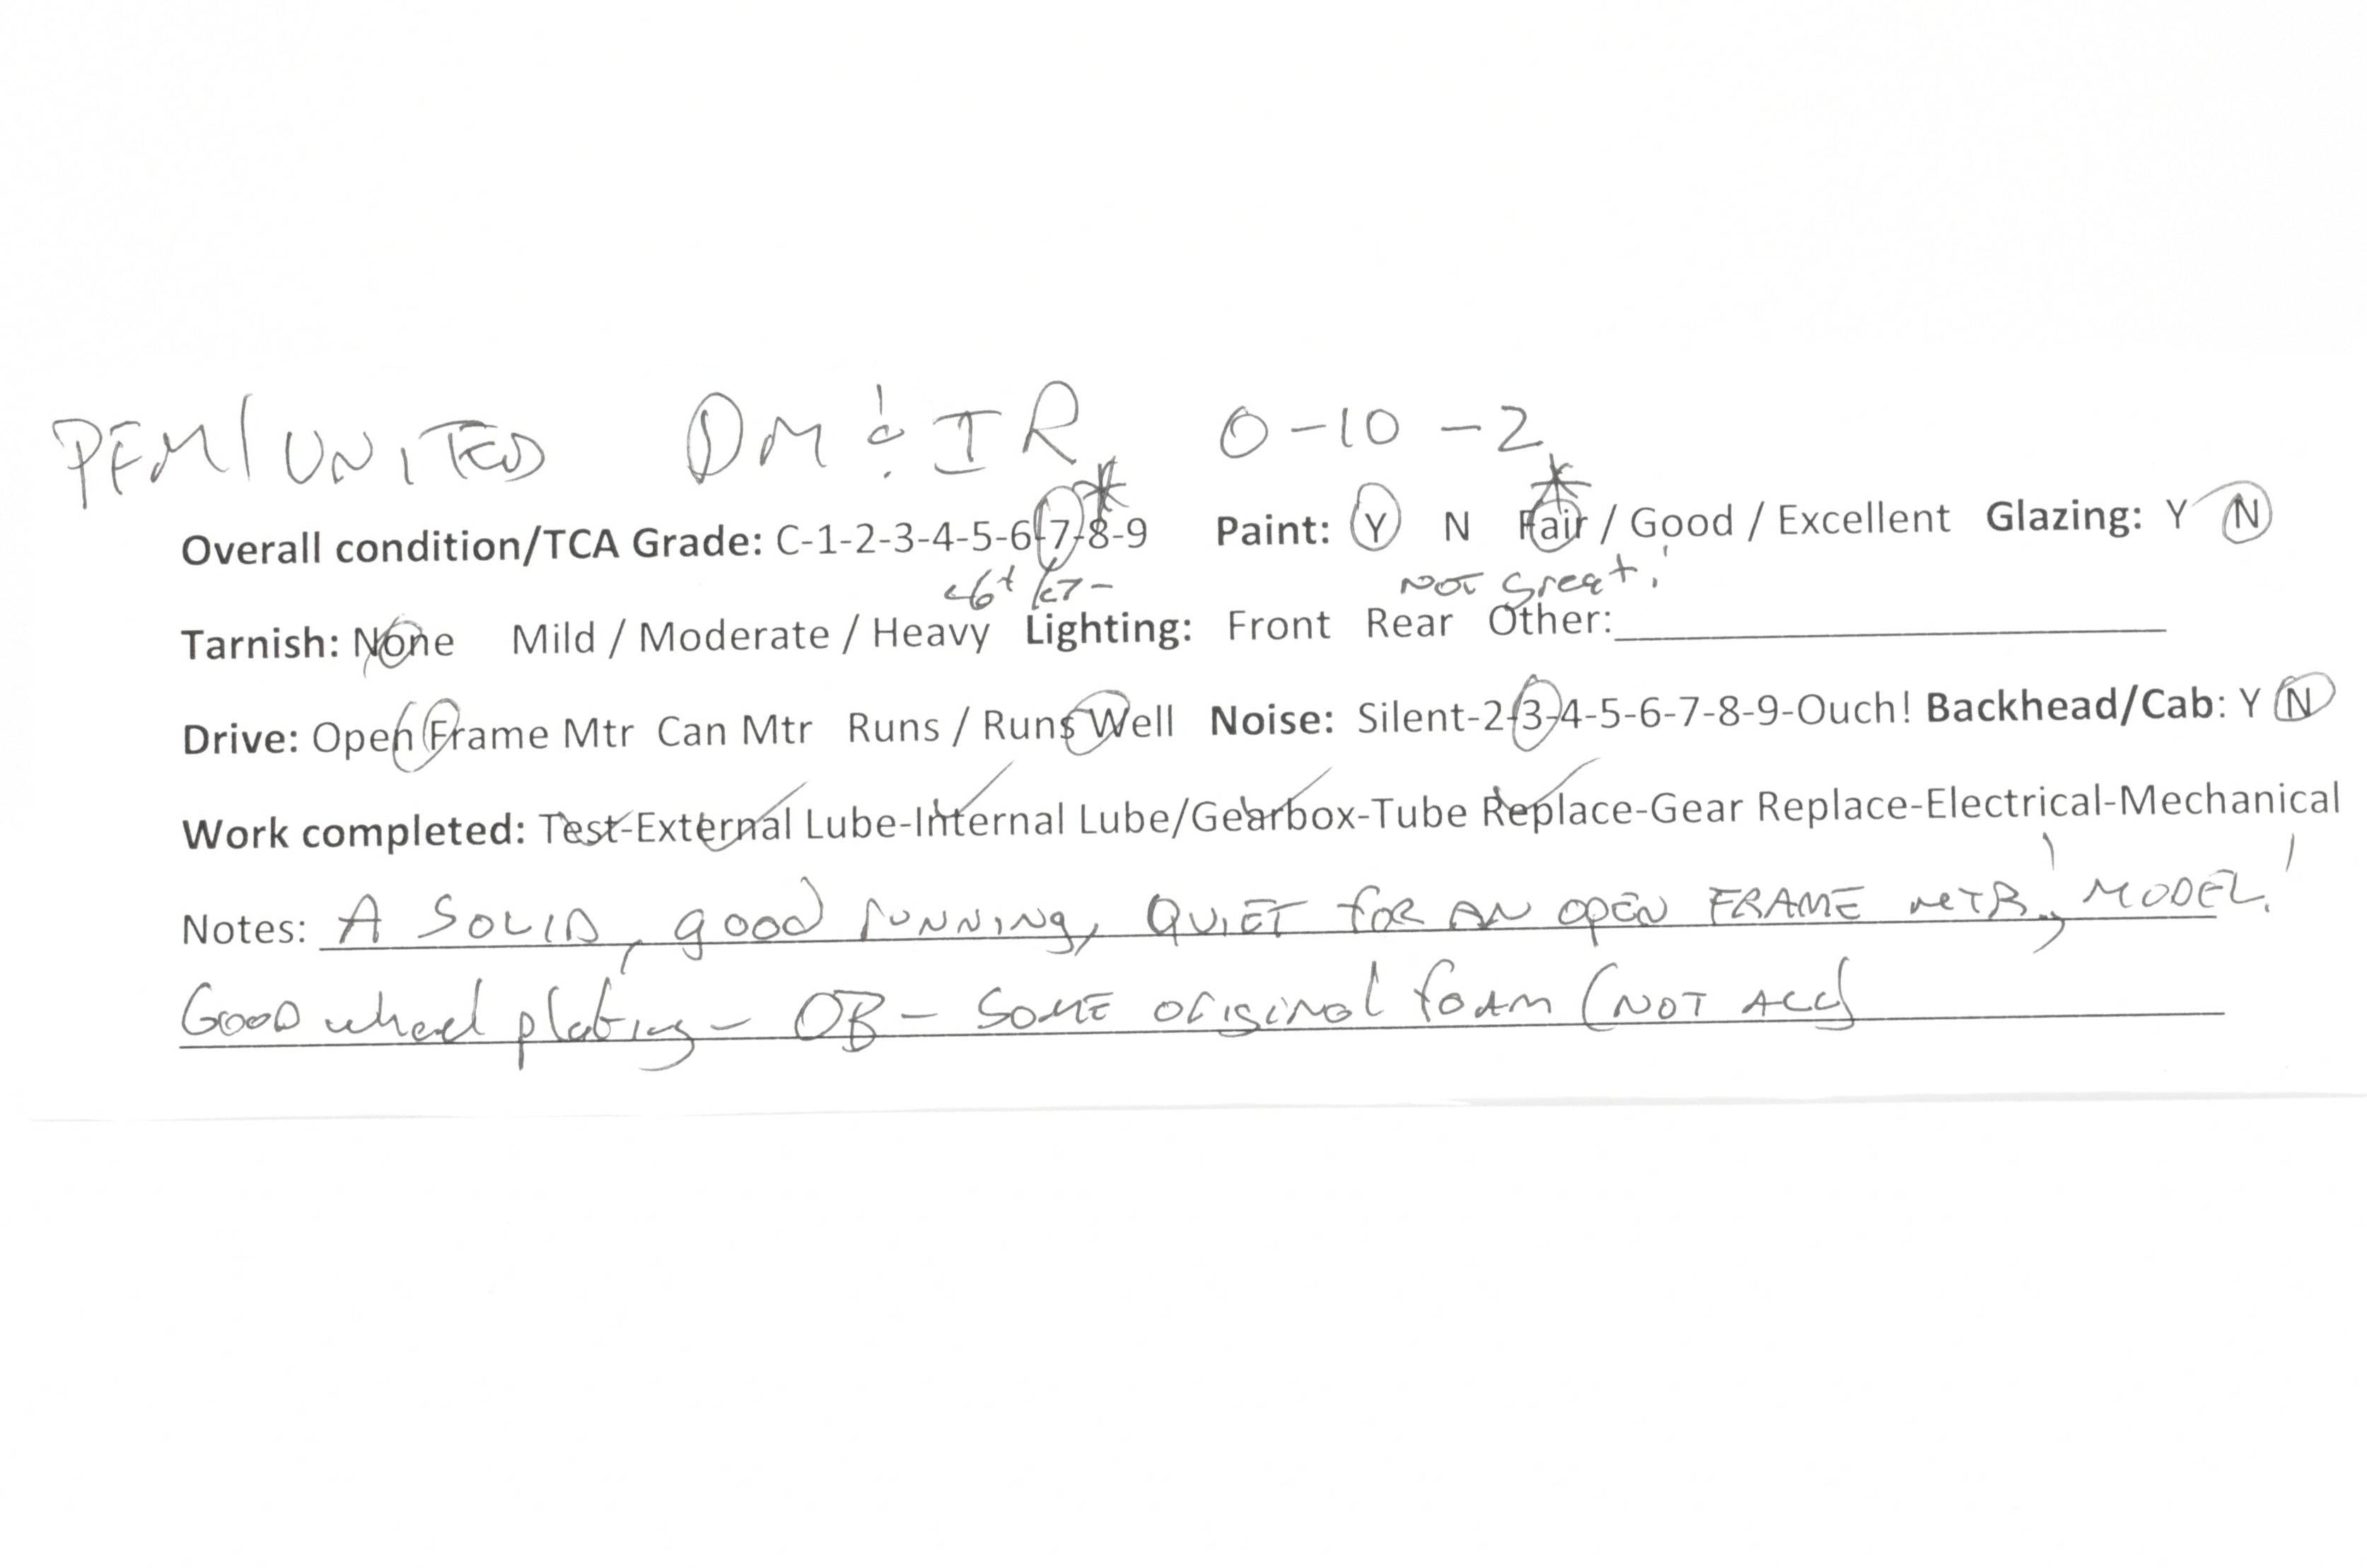 PFM/UNITED DM & IR 0-10-2
Overall condition/TCA Grade: C-1-2-3-4-5-6-7-8-9 Paint: Y N Fair / Good / Excellent Glazing: Y N
<6+ / <7- NOT Great!
Tarnish: None Mild / Moderate / Heavy Lighting: Front Rear Other:
Drive: Open Frame Mtr Can Mtr Runs / Runs Well Noise: Silent-2-3-4-5-6-7-8-9-Ouch! Backhead/Cab: Y N
Work completed: Test-External Lube-Internal Lube/Gearbox-Tube Replace-Gear Replace-Electrical-Mechanical
Notes: A SOLID, good running, QUIET for AN OPEN FRAME MTR!, MODEL!
Good wheel plating - OB - SOME original foam (NOT ALL)